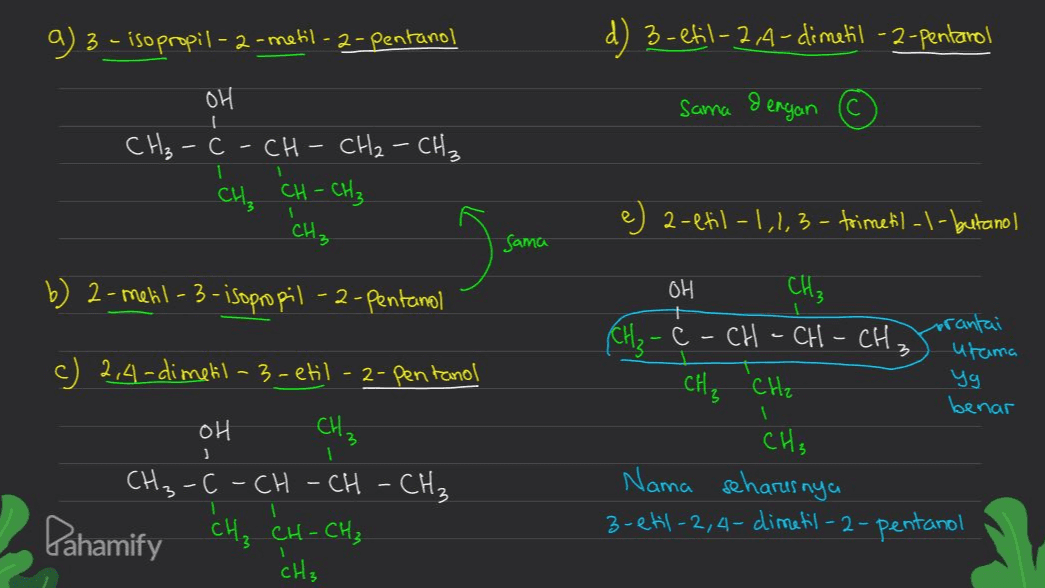 a) 3 - isopropil - 2 - metil - 2 - pentanol
OH
CH3 - C - CH - CH2 - CH3
CH3 CH - CH3
CH3
sama
b) 2 - metil - 3 - isopropil - 2 - pentanol
c) 2,4 - dimetil - 3 - etil - 2 - pentanol
OH CH3
CH3 - C - CH - CH - CH3
CH3 CH - CH3
CH3
Pahamify
d) 3 - etil - 2,4 - dimetil - 2 - pentanol
sama dengan C
e) 2 - etil - 1,1,3 - trimetil - 1 - butanol
OH CH3
CH3 - C - CH - CH - CH3
CH3 CH2
CH3
rantai
utama
yg
benar
Nama seharusnya
3 - etil - 2,4 - dimetil - 2 - pentanol